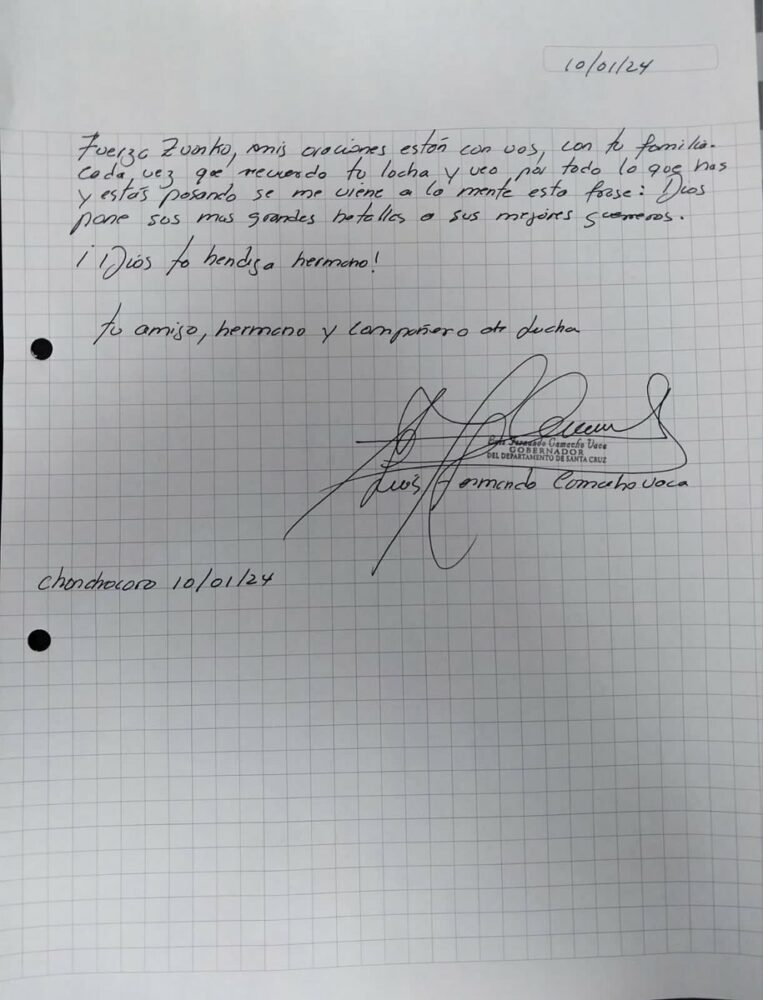 10/01/24
Fuerza Zvonko, mis oraciones están con vos, con tu familia.
Cada vez que recuerdo tu lucha y veo por todo lo que has
y estás pasando se me viene a la mente esta frase: Dios
pone sus mas grandes batallas a sus mejores guerreros.
¡Dios te bendiga hermano!
tu amigo, hermano y compañero de lucha
Luis Fernando Camacho Vaca
GOBERNADOR
DEL DEPARTAMENTO DE SANTA CRUZ
Luis Fernando Camacho Vaca
Chonchocoro 10/01/24